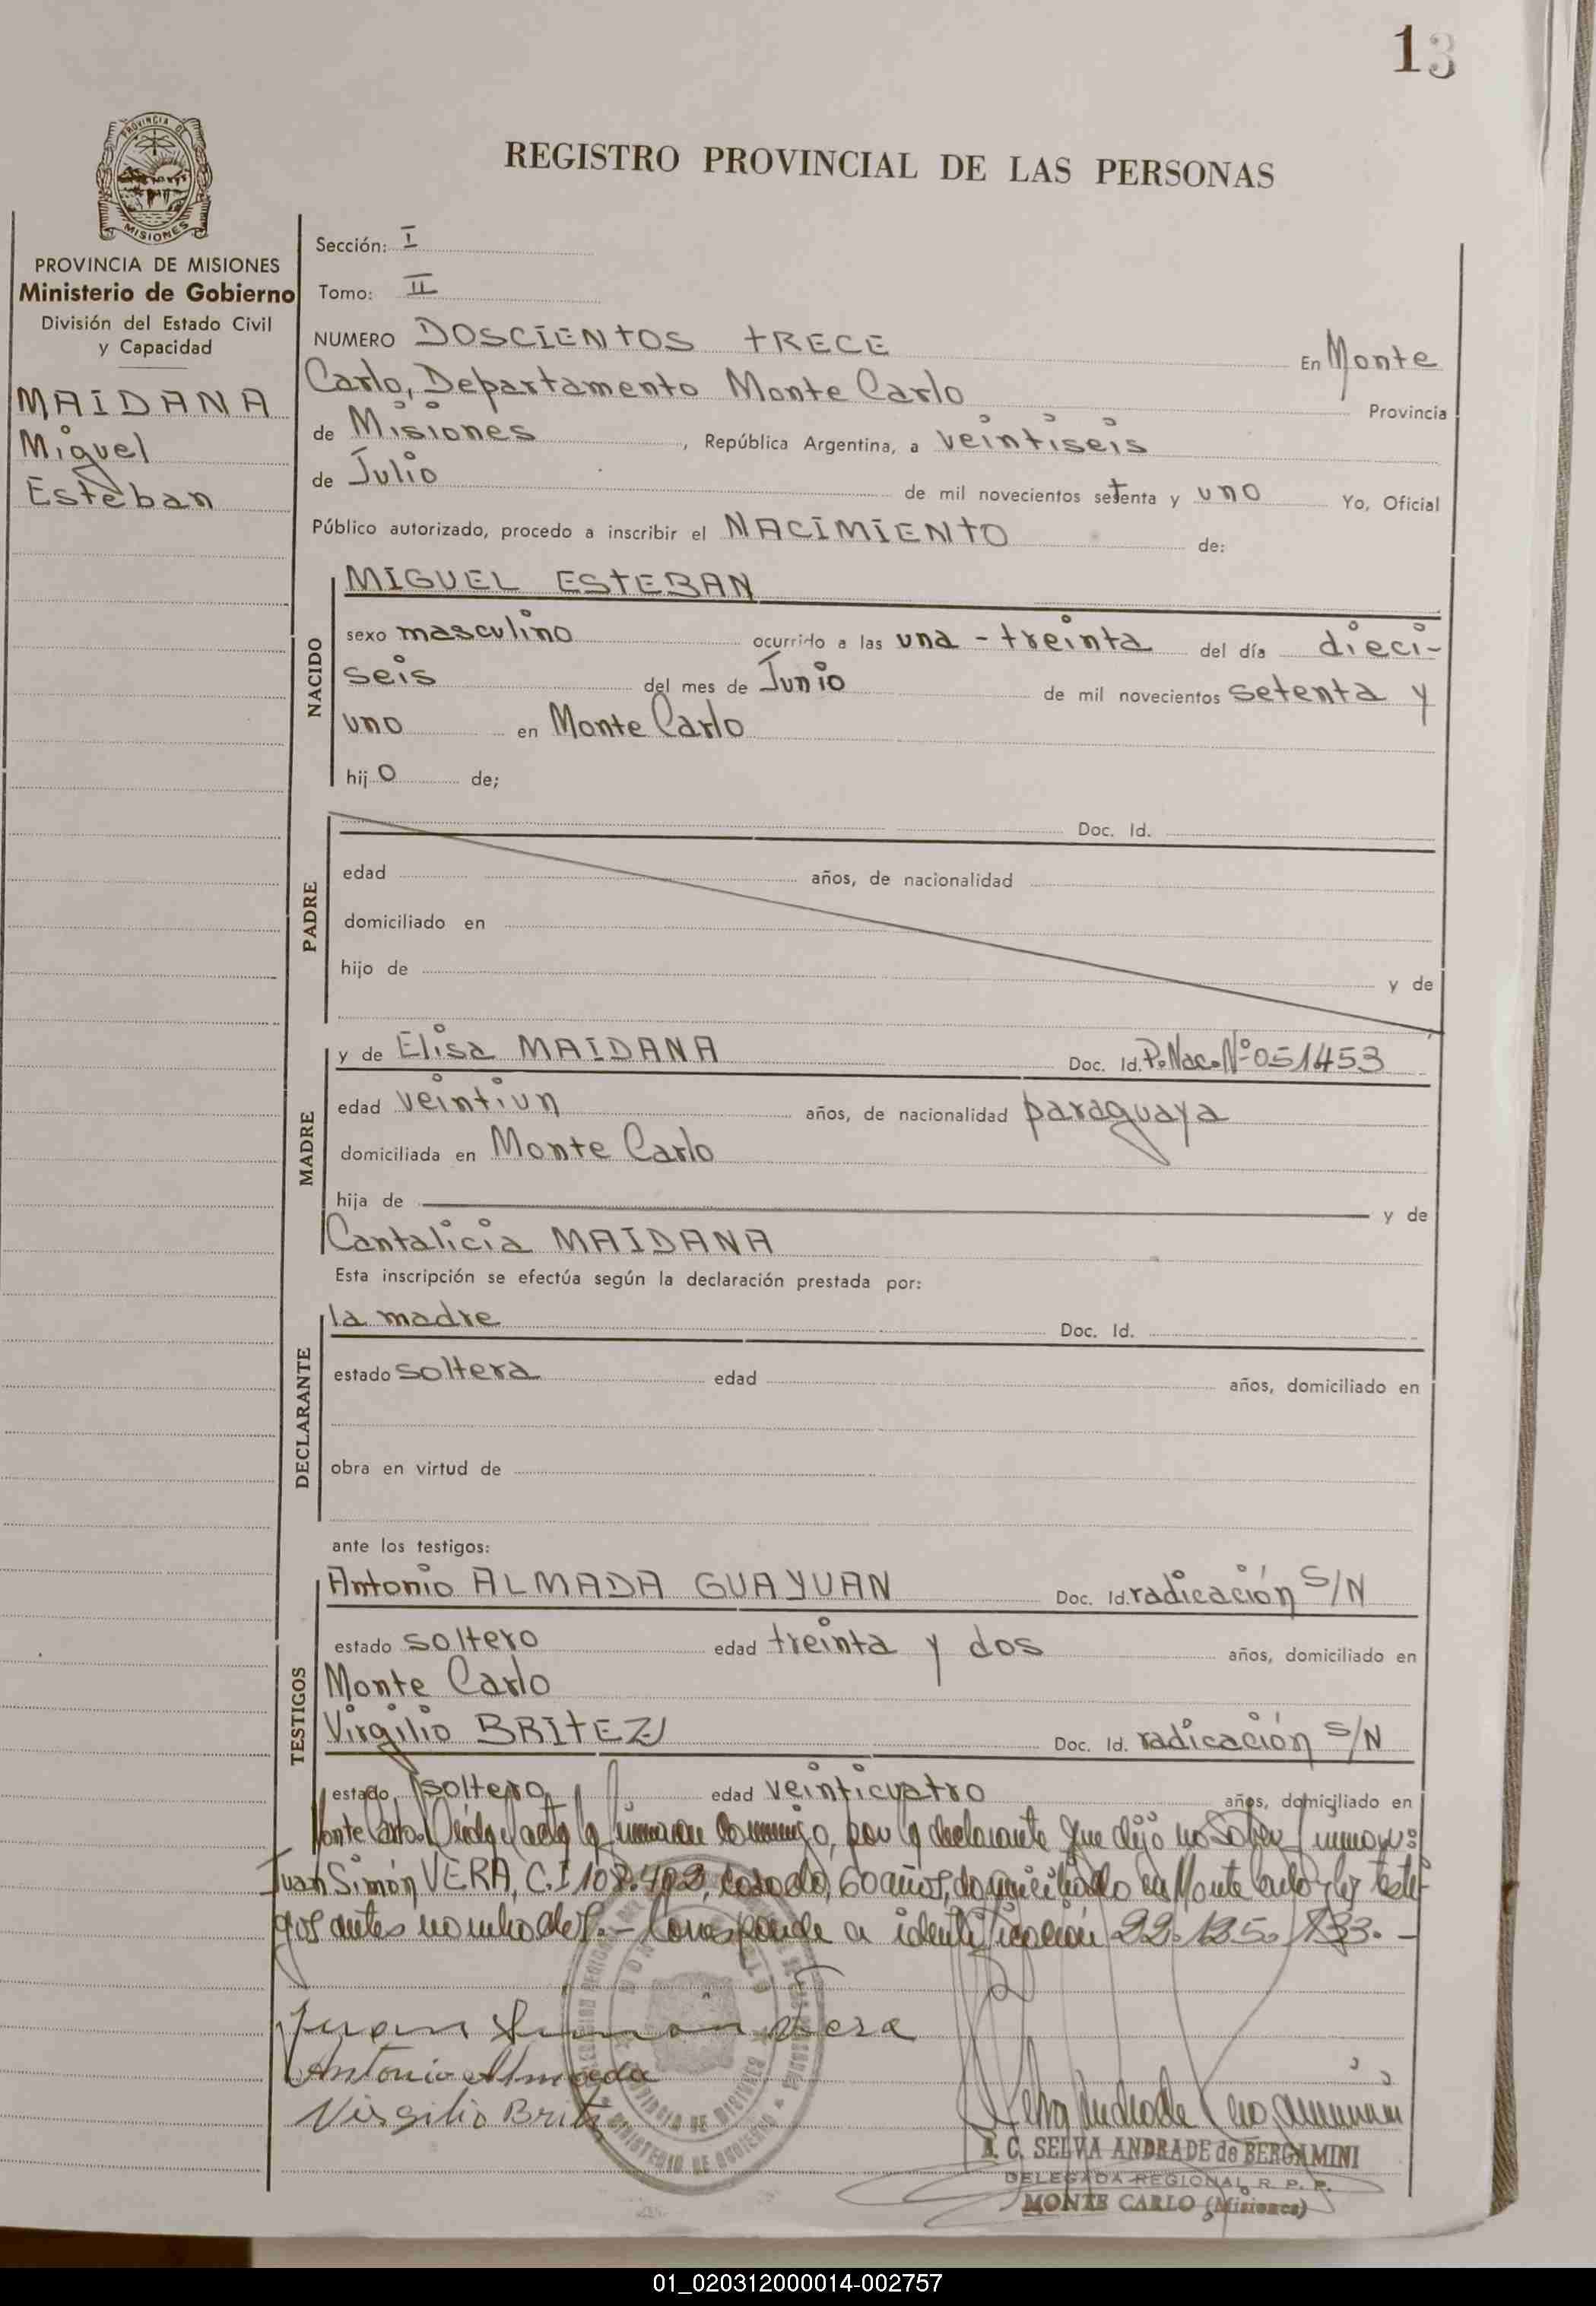 13
PROVINCIA DE
MISIONES
REGISTRO PROVINCIAL DE LAS PERSONAS
PROVINCIA DE MISIONES
Ministerio de Gobierno
División del Estado Civil
y Capacidad
MAIDANA
Miguel
Esteban
Sección: I
Tomo: II
NUMERO DOSCIENTOS TRECE En Monte
Carlo, Departamento Monte Carlo Provincia
de Misiones, República Argentina, a veintiseis
de Julio de mil novecientos setenta y uno Yo, Oficial
Público autorizado, procedo a inscribir el NACIMIENTO de:
NACIDO
MIGUEL ESTEBAN
sexo masculino ocurrido a las una - treinta del día dieci-
seis del mes de Junio de mil novecientos setenta y
uno en Monte Carlo
hijo de;
PADRE
Doc. Id.
edad años, de nacionalidad
domiciliado en
hijo de y de
MADRE
y de Elisa MAIDANA Doc. Id. P. Nac. Nº 051453
edad veintiun años, de nacionalidad paraguaya
domiciliada en Monte Carlo
hija de y de
Cantalicia MAIDANA
Esta inscripción se efectúa según la declaración prestada por:
DECLARANTE
la madre Doc. Id.
estado soltera edad años, domiciliado en
obra en virtud de
ante los testigos:
TESTIGOS
Antonio ALMADA GUAYUAN Doc. Id. radicación S/N
estado soltero edad treinta y dos años, domiciliado en
Monte Carlo
Virgilio BRITEZ Doc. Id. radicación S/N
estado soltero edad veinticuatro años, domiciliado en
Monte Carlo. Leída el acta la firmaron conmigo, por la declarante que dijo no saber firmar:
Juan Simón VERA, C.I 108.402, casado, 60 años, domiciliado en Monte Carlo y los testi-
gos antes nombrados.- Corresponde a identificación 22.125.133.-
Juan Simón Vera
Antonio Almada
Virgilio Britez
A. C. SELVA ANDRADE de BERGAMINI
DELEGADA REGIONAL R. P. P.
MONTE CARLO (Misiones)
PROVINCIA DE MISIONES
MINISTERIO DE GOBIERNO
01_020312000014-002757